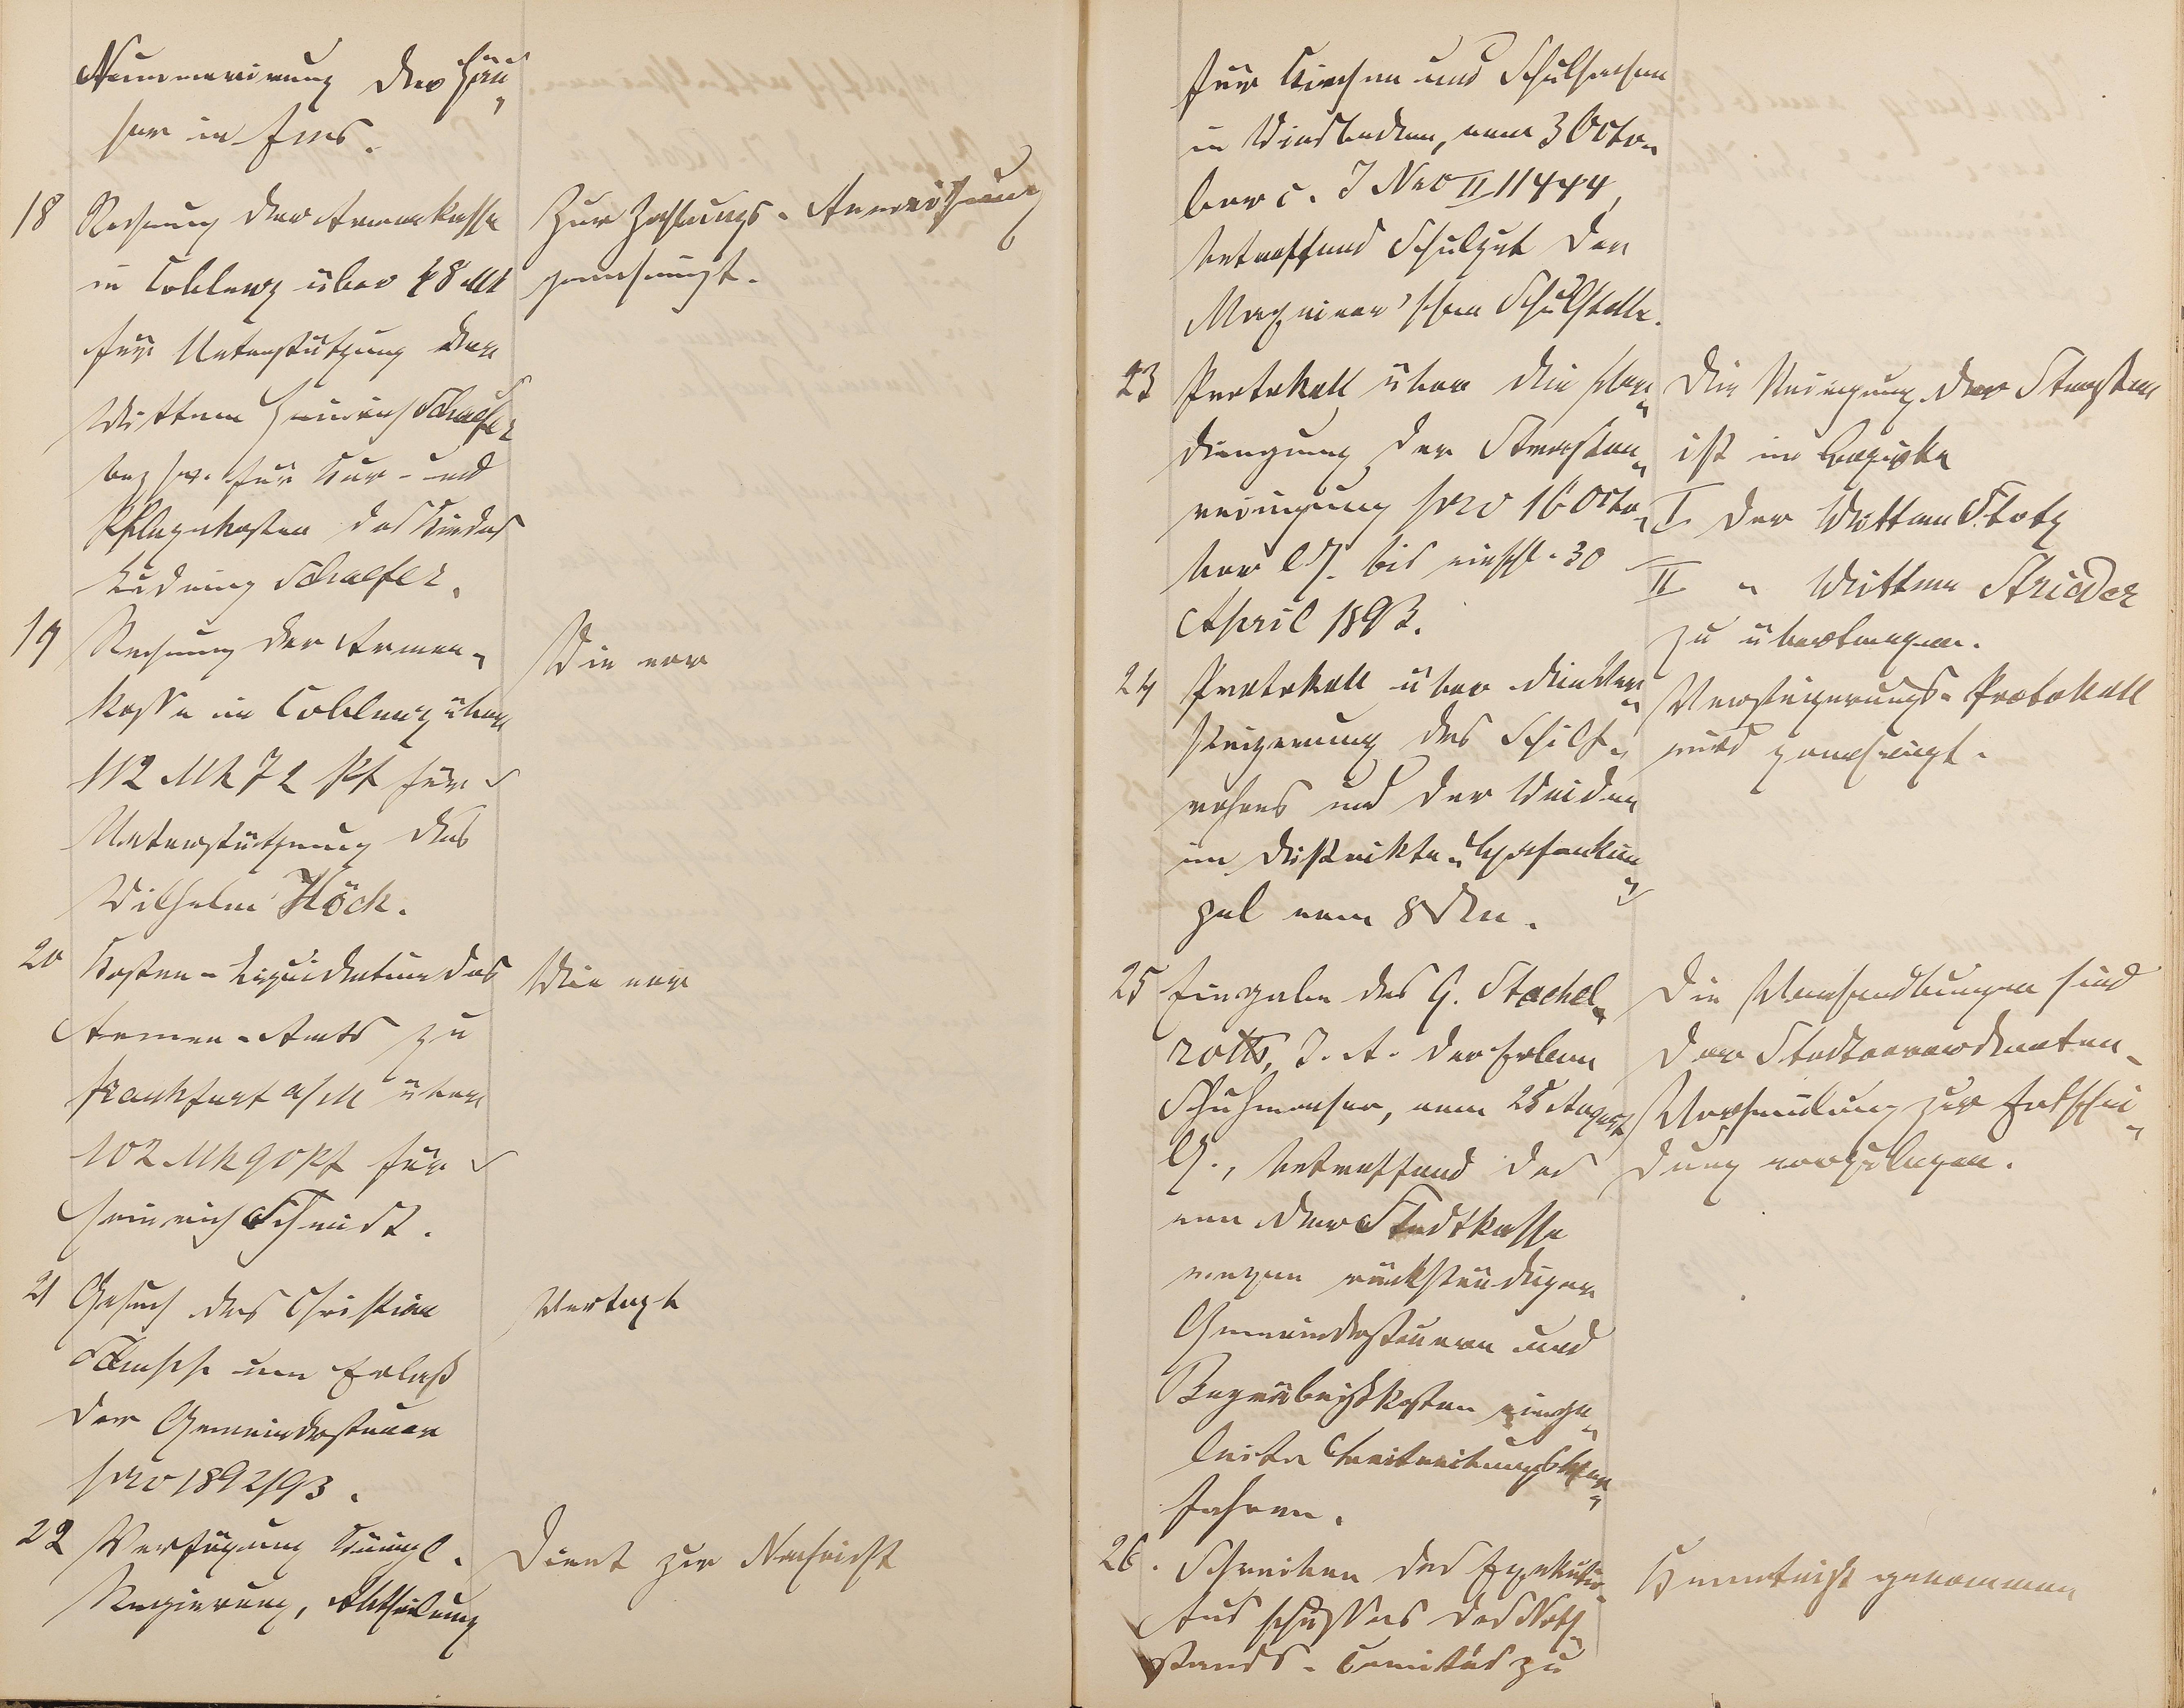 Nummerirung der Häu„
ser in Ems.
18 Rechnung der Armenkasse
in Coblenz über 48 Mk
für Unterstützung der
Wittwe Heinrich Schaefer
bezhw. für Kur- und
Pflegekosten des Kindes
Ludwig Schaefer.
Zur Zahlungs-Anweisung
genehmigt.
19 Rechnung der Armen-
kasse in Coblenz über
112 Mk 72 Pf für
Unterstützung des
Wilhelm Höck.
Wie vor
20 Kosten-Liquidation des
Armen-Amts zu
Frankfurt a/M über
102 Mk 90 Pf für
Heinrich Schmidt.
Wie vor
21 Gesuch des Christian
um Erlaß
der Gemeindesteuer
pro 1892/93.
Vertagt
22 Verfügung Königl.
Regierung, Abtheilung
Dient zur Nachricht
für Kirchen und Schulsachen
in Wiesbaden, vom 3 Octo„
ber c. J Nro II 11444,
betreffend Schulgut der
Schulstelle.
23 Protokoll über die Ver„
dingung der Straßen„
reinigung pro 16 Octo„
ber lJ. bis einschl. 30
April 1893.
Die Reinigung der Straßen
ist im Bezirke
I der Wittwe Stotz
II „ Wittwe Strieder
zu übertragen.
24 Protokoll über die Ver„
steigerung des Schilf„
rohres und der Weiden
im Distrikte
vom 8 d Mn.
Versteigerungs-Protokoll
wird genehmigt.
25 Eingabe des G. Stachel„
roths, I. A. der Erben
Schuhmacher, vom 25 August
lJ., betreffend das
von der Stadtkasse
wegen rückständiger
Gemeindesteuern und
Begräbnißkosten einge„
leitete Beitreibungsver„
fahren.
Die Verhandlungen sind
der Stadtverordneten-
Versammlung zur Entschei„
dung vorzulegen.
26. Schreiben des Exekutiv-
Ausschusses des Noth„
stands-Comités zu
Kenntniß genommen